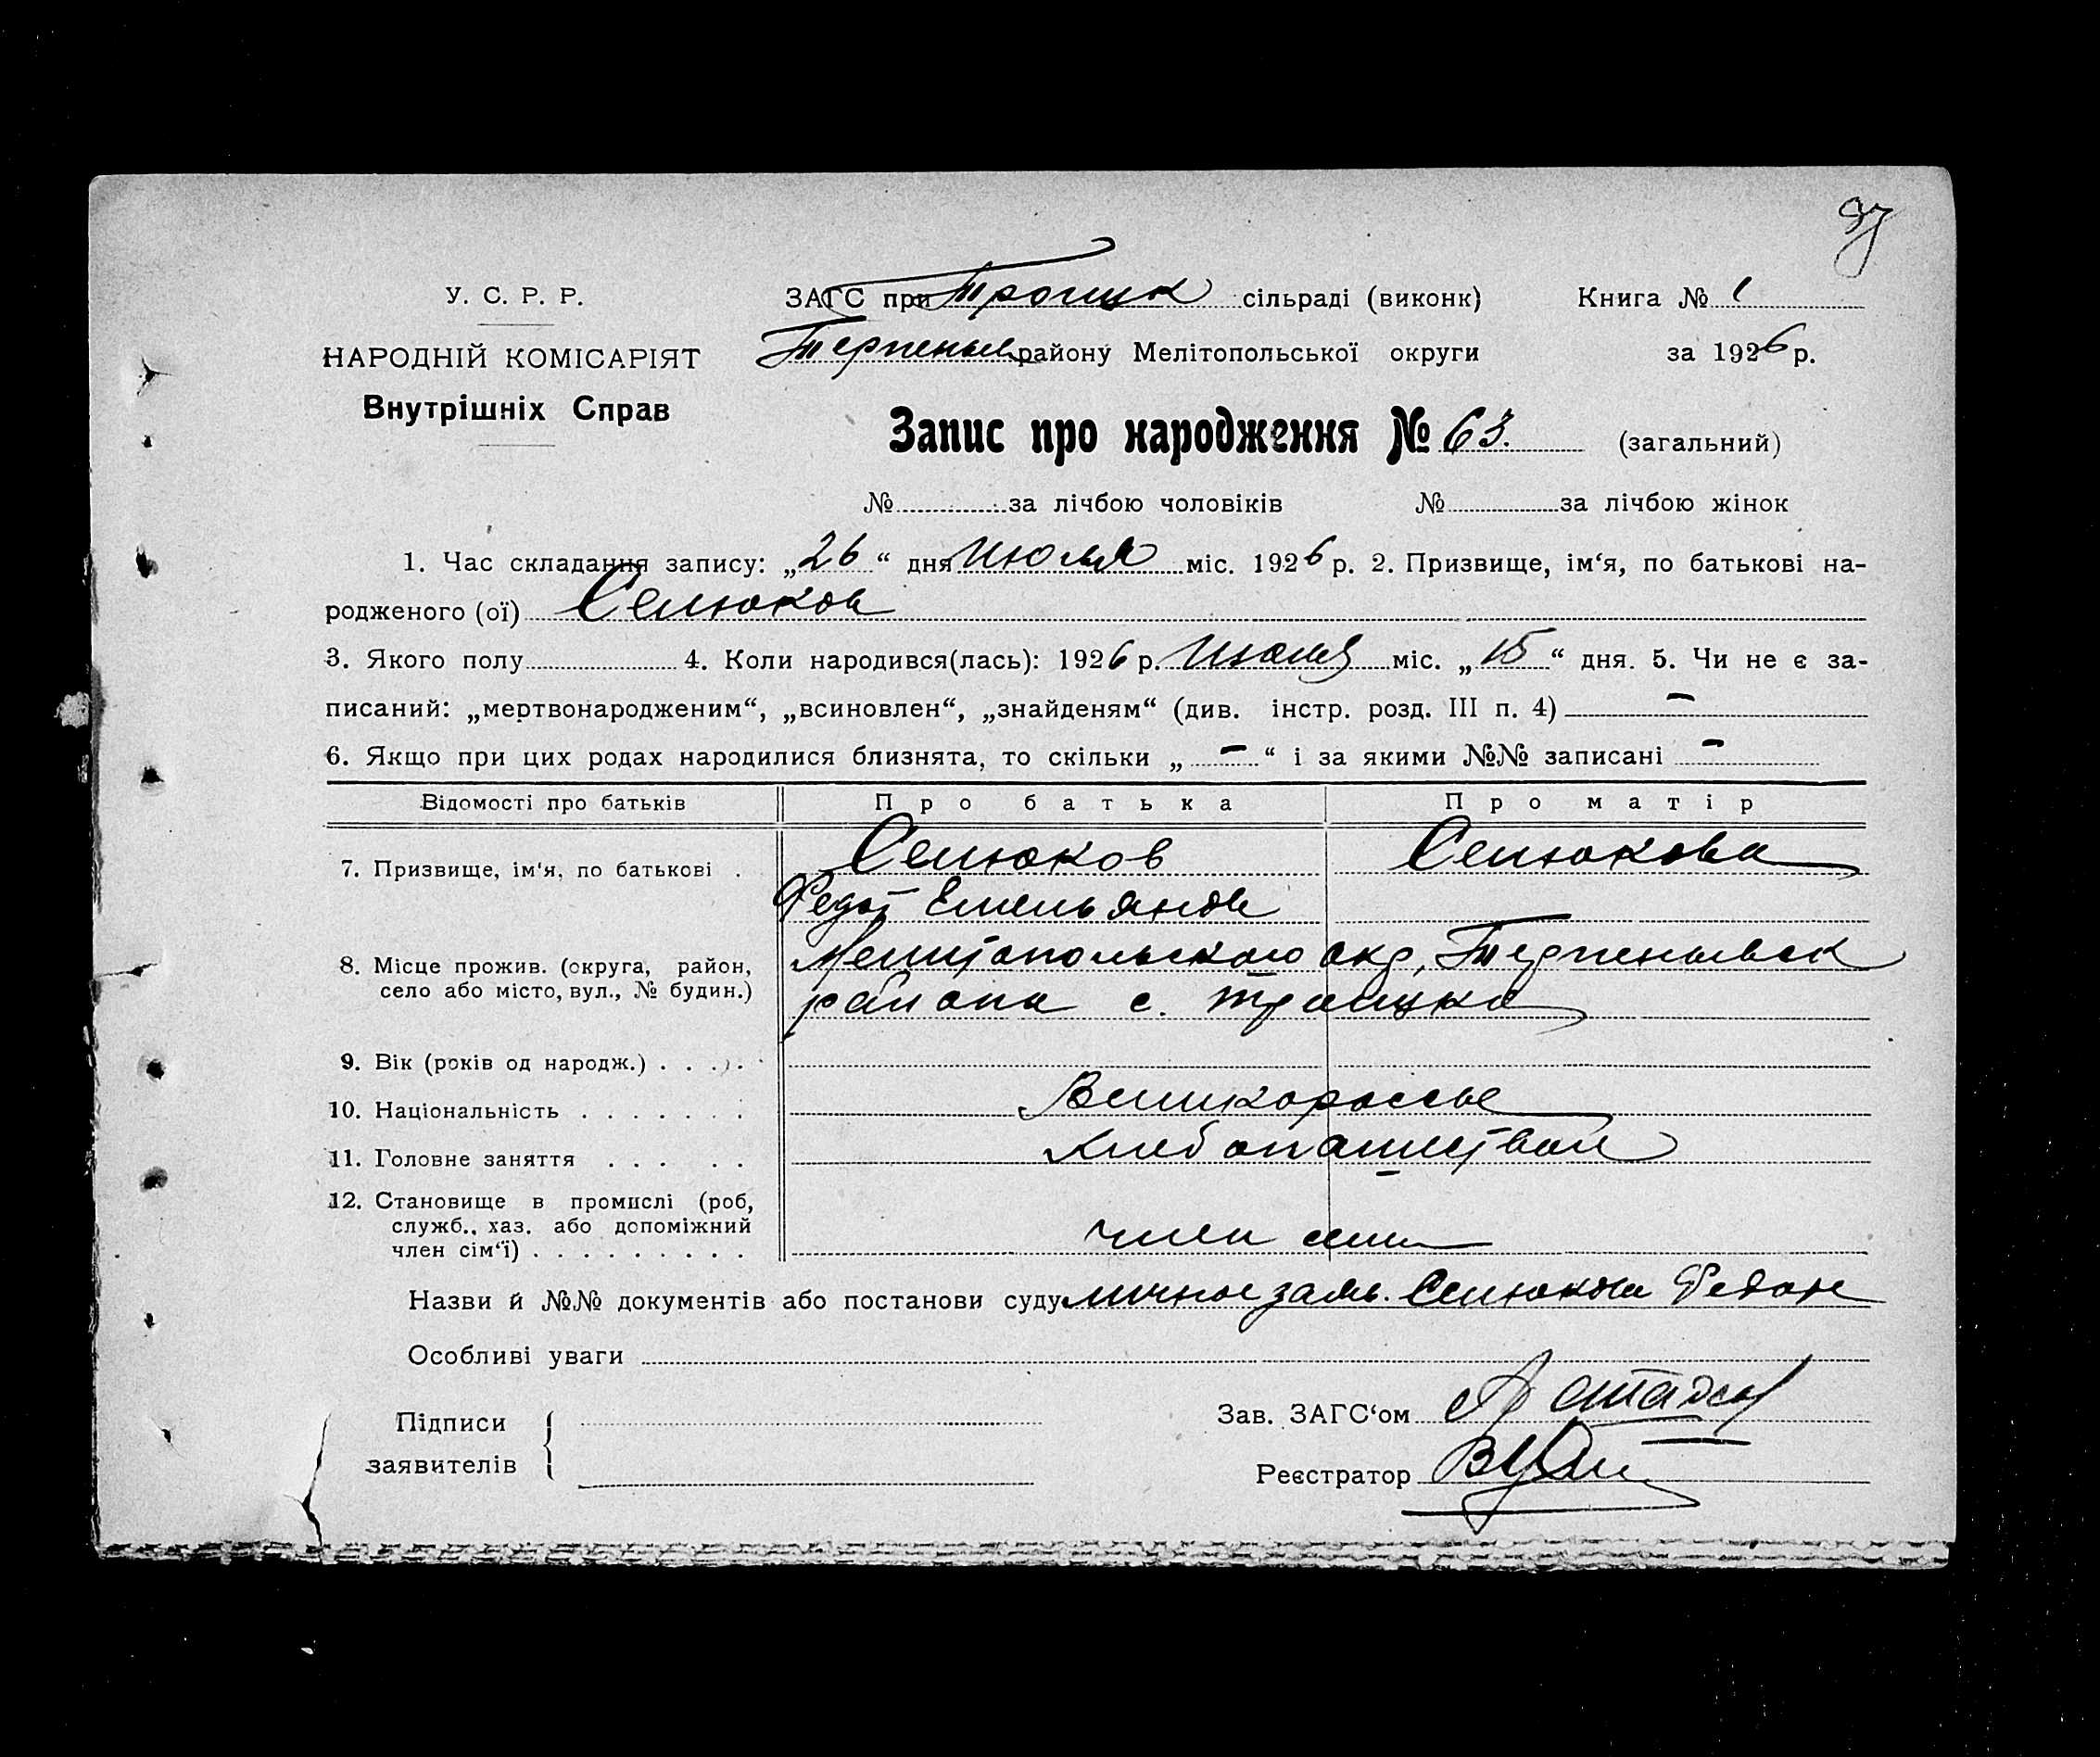 37
У. С. Р. Р.
НАРОДНІЙ КОМІСАРІЯТ
Внутрішніх Справ
ЗАГС при Троицк сільраді (виконк) Книга № 1
району Мелітопольської округи за 1926 р.
Запис про народження № 63. (загальний)
№ за лічбою чоловіків № за лічбою жінок
1. Час складання запису: „26“ дня Июля міс. 1926 р. 2. Призвище, ім‘я, по батькові на-
родженого (ої) Селюков
3. Якого полу 4. Коли народився(лась): 1926 р. Июля міс. „15“ дня. 5. Чи не є за-
писаний: „мертвонародженим“, „всиновлен“, „знайденям“ (див. інстр. розд. III п. 4) –
6. Якщо при цих родах народилися близнята, то скільки „ – “ і за якими №№ записані –
Відомості про батьків Про батька Про матір
7. Призвище, ім‘я, по батькові . Селюков Селюкова
Федот Емельянов
8. Місце прожив. (округа, район, Мелитопольского окр,
село або місто, вул., № будин.) района с. Троицко
9. Вік (років од народж.) . . . .
10. Національність . . . . . . . Великороссы
11. Головне заняття . . . . . Хлебопашество
12. Становище в промислі (роб,
служб., хаз. або допоміжний
член сім‘ї) . . . . . . . . . член семи
Назви й №№ документів або постанови суду личное заяв. Селюкова
Особливі уваги
Підписи
заявителів
Зав. ЗАГС‘ом
Реєстратор